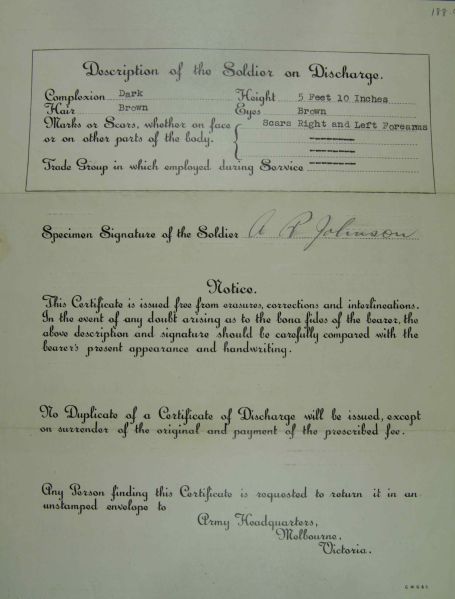 188
Description of the Soldier on Discharge.
Complexion Dark Height 5 Feet 10 Inches
Hair Brown Eyes Brown
Marks or Scars, whether on face Scars Right and Left Forearms
or on other parts of the body.
Trade Group in which employed during Service
Specimen Signature of the Soldier A R Johnson
Notice.
This Certificate is issued free from erasures, corrections and interlineations.
In the event of any doubt arising as to the bona fides of the bearer, the
above description and signature should be carefully compared with the
bearer's present appearance and handwriting.
No Duplicate of a Certificate of Discharge will be issued, except
on surrender of the original and payment of the prescribed fee.
Any Person finding this Certificate is requested to return it in an
unstamped envelope to
Army Headquarters,
Melbourne,
Victoria.